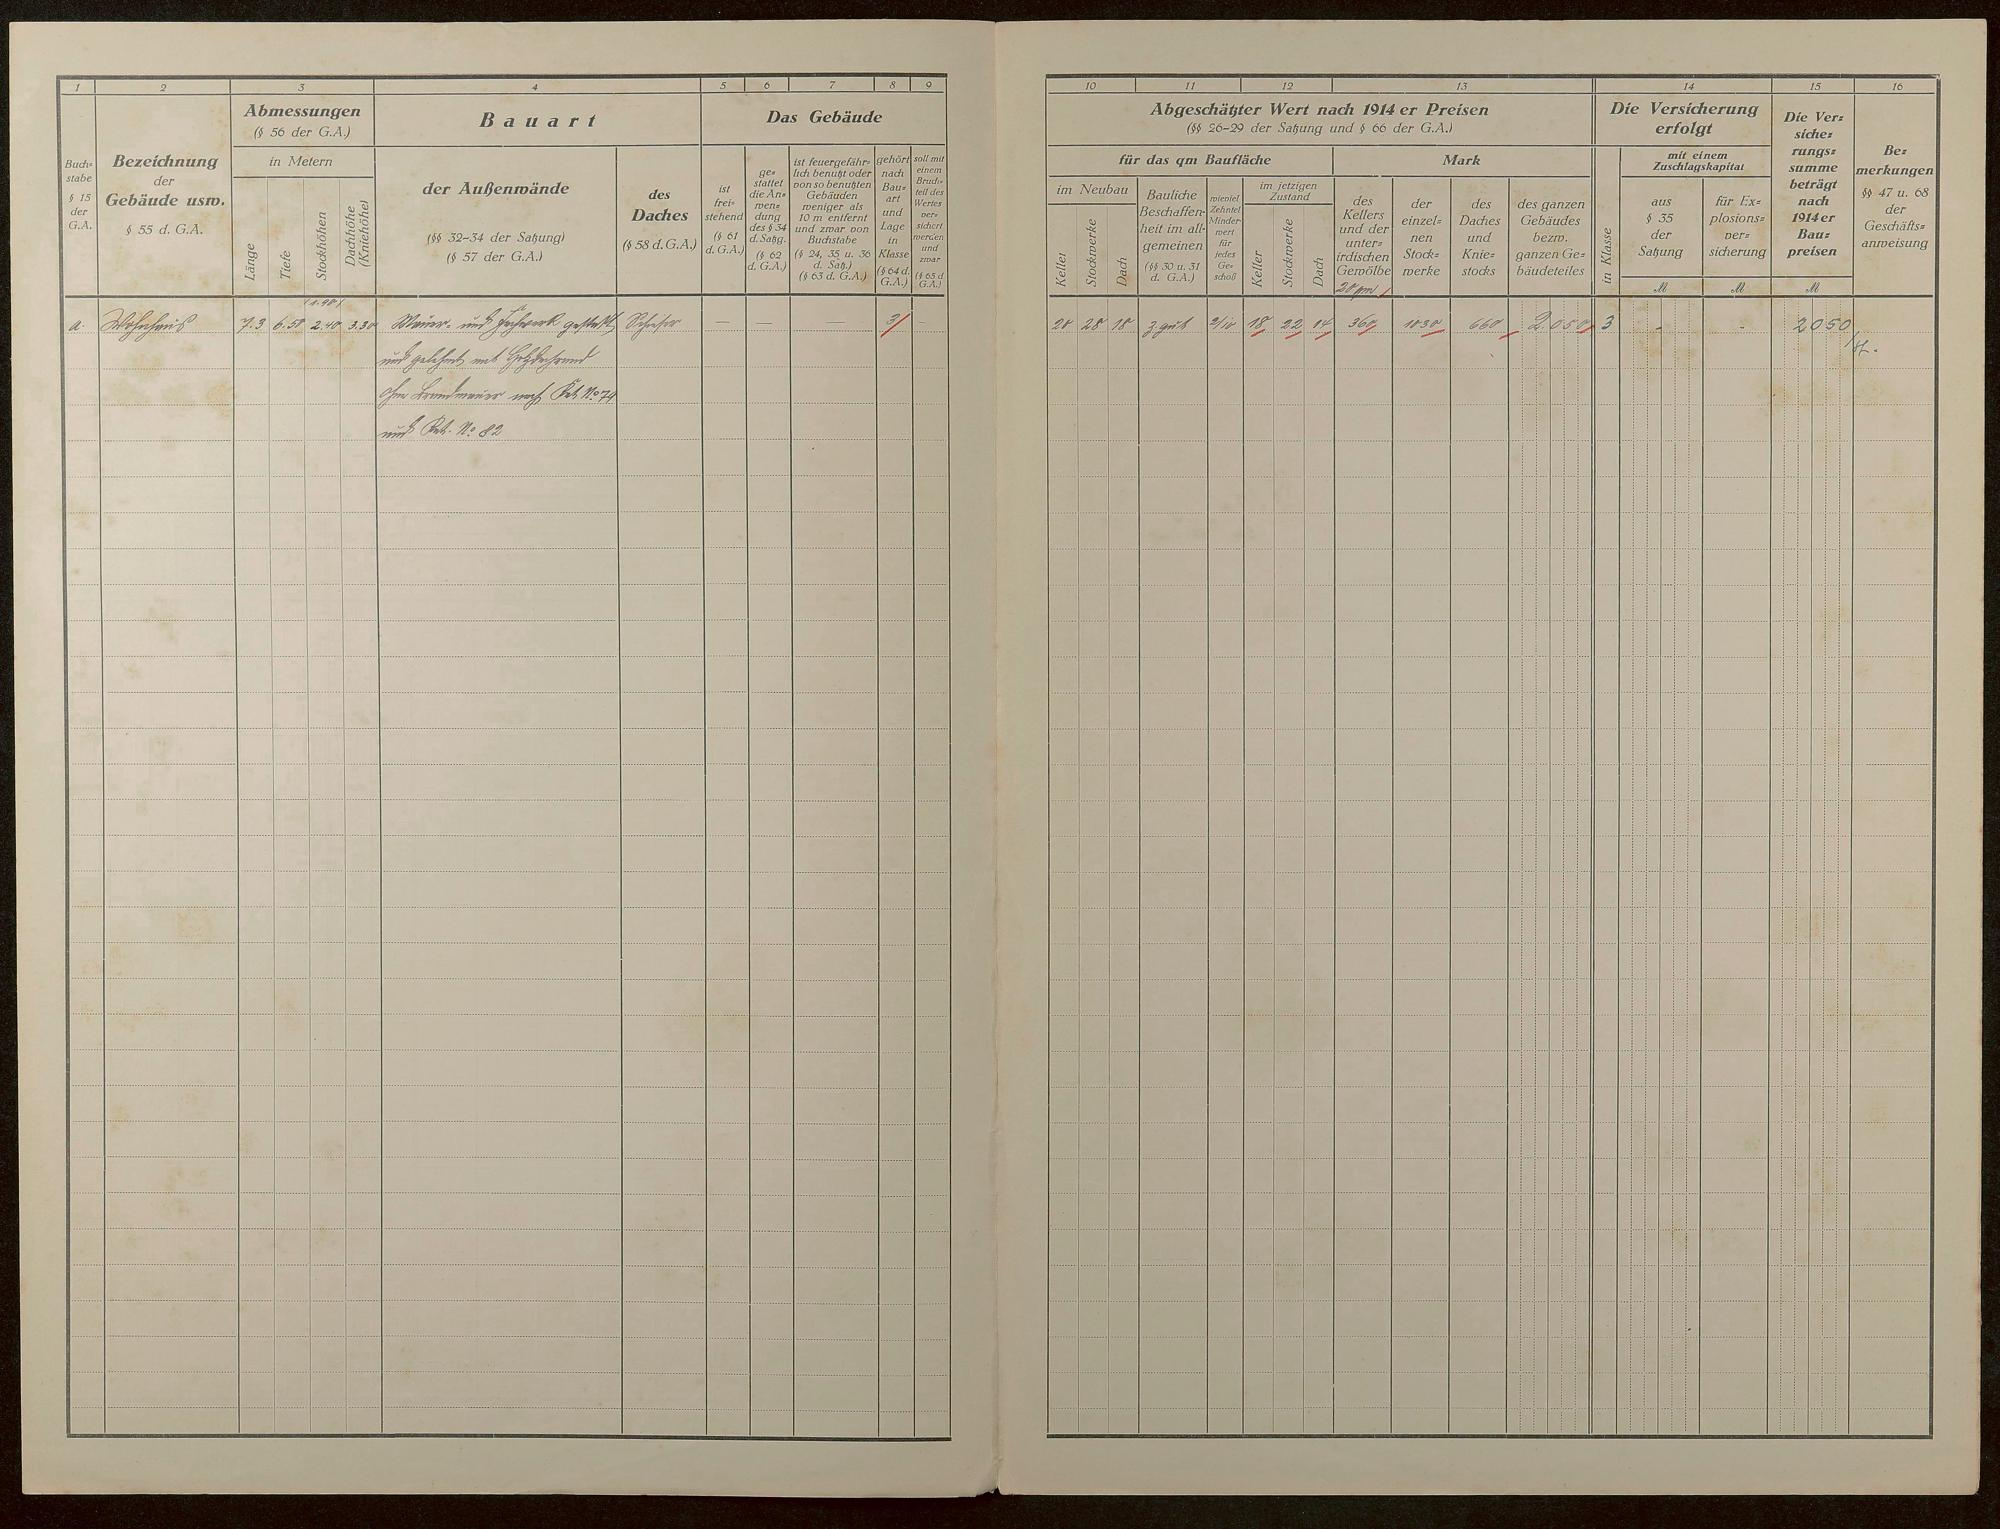 1 2 3 4 5 6 7 8 9
Abmessungen
(§ 56 der G.A.)
in Metern
Bauart
Das Gebäude
Buch=
stabe
§ 15
der
G.A.
Bezeichnung
der
Gebäude usw.
§ 55 d. G.A.
Länge
Tiefe
Stockhöhen
Dachhöhe
(Kniehöhe)
der Außenwände
(§§ 32–34 der Satzung)
(§ 57 der G.A.)
des
Daches
(§ 58 d. G.A.)
ist
frei=
stehend
(§ 61
d. G.A.)
ge=
stattet
die An=
wen=
dung
des § 34
d. Satzg.
(§ 62
d. G.A.)
ist feuergefähr=
lich benutzt oder
von so benutzten
Gebäuden
weniger als
10 m entfernt
und zwar von
Buchstabe
(§ 24, 35 u. 36
d. Satz.)
(§ 63 d. G.A.)
gehört
nach
Bau=
art
und
Lage
in
Klasse
(§ 64 d.
G.A.)
soll mit
einem
Bruch=
teil des
Wertes
ver=
sichert
werden
und
zwar
(§ 65 d.
G.A.)
(1.90)
a. Wohnhaus 7.3 6.50 2.40 3.30 Mauer- und Fachwerk gestakt Schiefer — — 3/ –
und gelehmt mit
ohne Brandmauer nach Kat. No 79
und Kat. No 82
10 11 12 13 14 15 16
Abgeschätzter Wert nach 1914 er Preisen
(§§ 26–29 der Satzung und § 66 der G.A.)
für das qm Baufläche
Mark
im Neubau
Keller
Stockwerke
Dach
Bauliche
Beschaffen=
heit im all=
gemeinen
(§§ 30 u. 31
d. G.A.)
wieviel
Zehntel
Minder
wert
für
jedes
Ge=
schoß
im jetzigen
Zustand
Keller
Stockwerke
Dach
des
Kellers
und der
unter=
irdischen
Gewölbe
20 qm
der
einzel=
nen
Stock=
werke
des
Daches
und
Knie=
stocks
des ganzen
Gebäudes
bezw.
ganzen Ge=
bäudeteiles
Die Versicherung
erfolgt
in Klasse
mit einem
Zuschlagskapital
aus
§ 35
der
Satzung
M
für Ex=
plosions=
ver=
sicherung
M
Die Ver=
siche=
rungs=
summe
beträgt
nach
1914 er
Bau=
preisen
M
Be=
merkungen
§§ 47 u. 68
der
Geschäfts=
anweisung
20 28 18 z. gut 2/10 18 22 14 360 1030 660 2.050 3 - - 2050